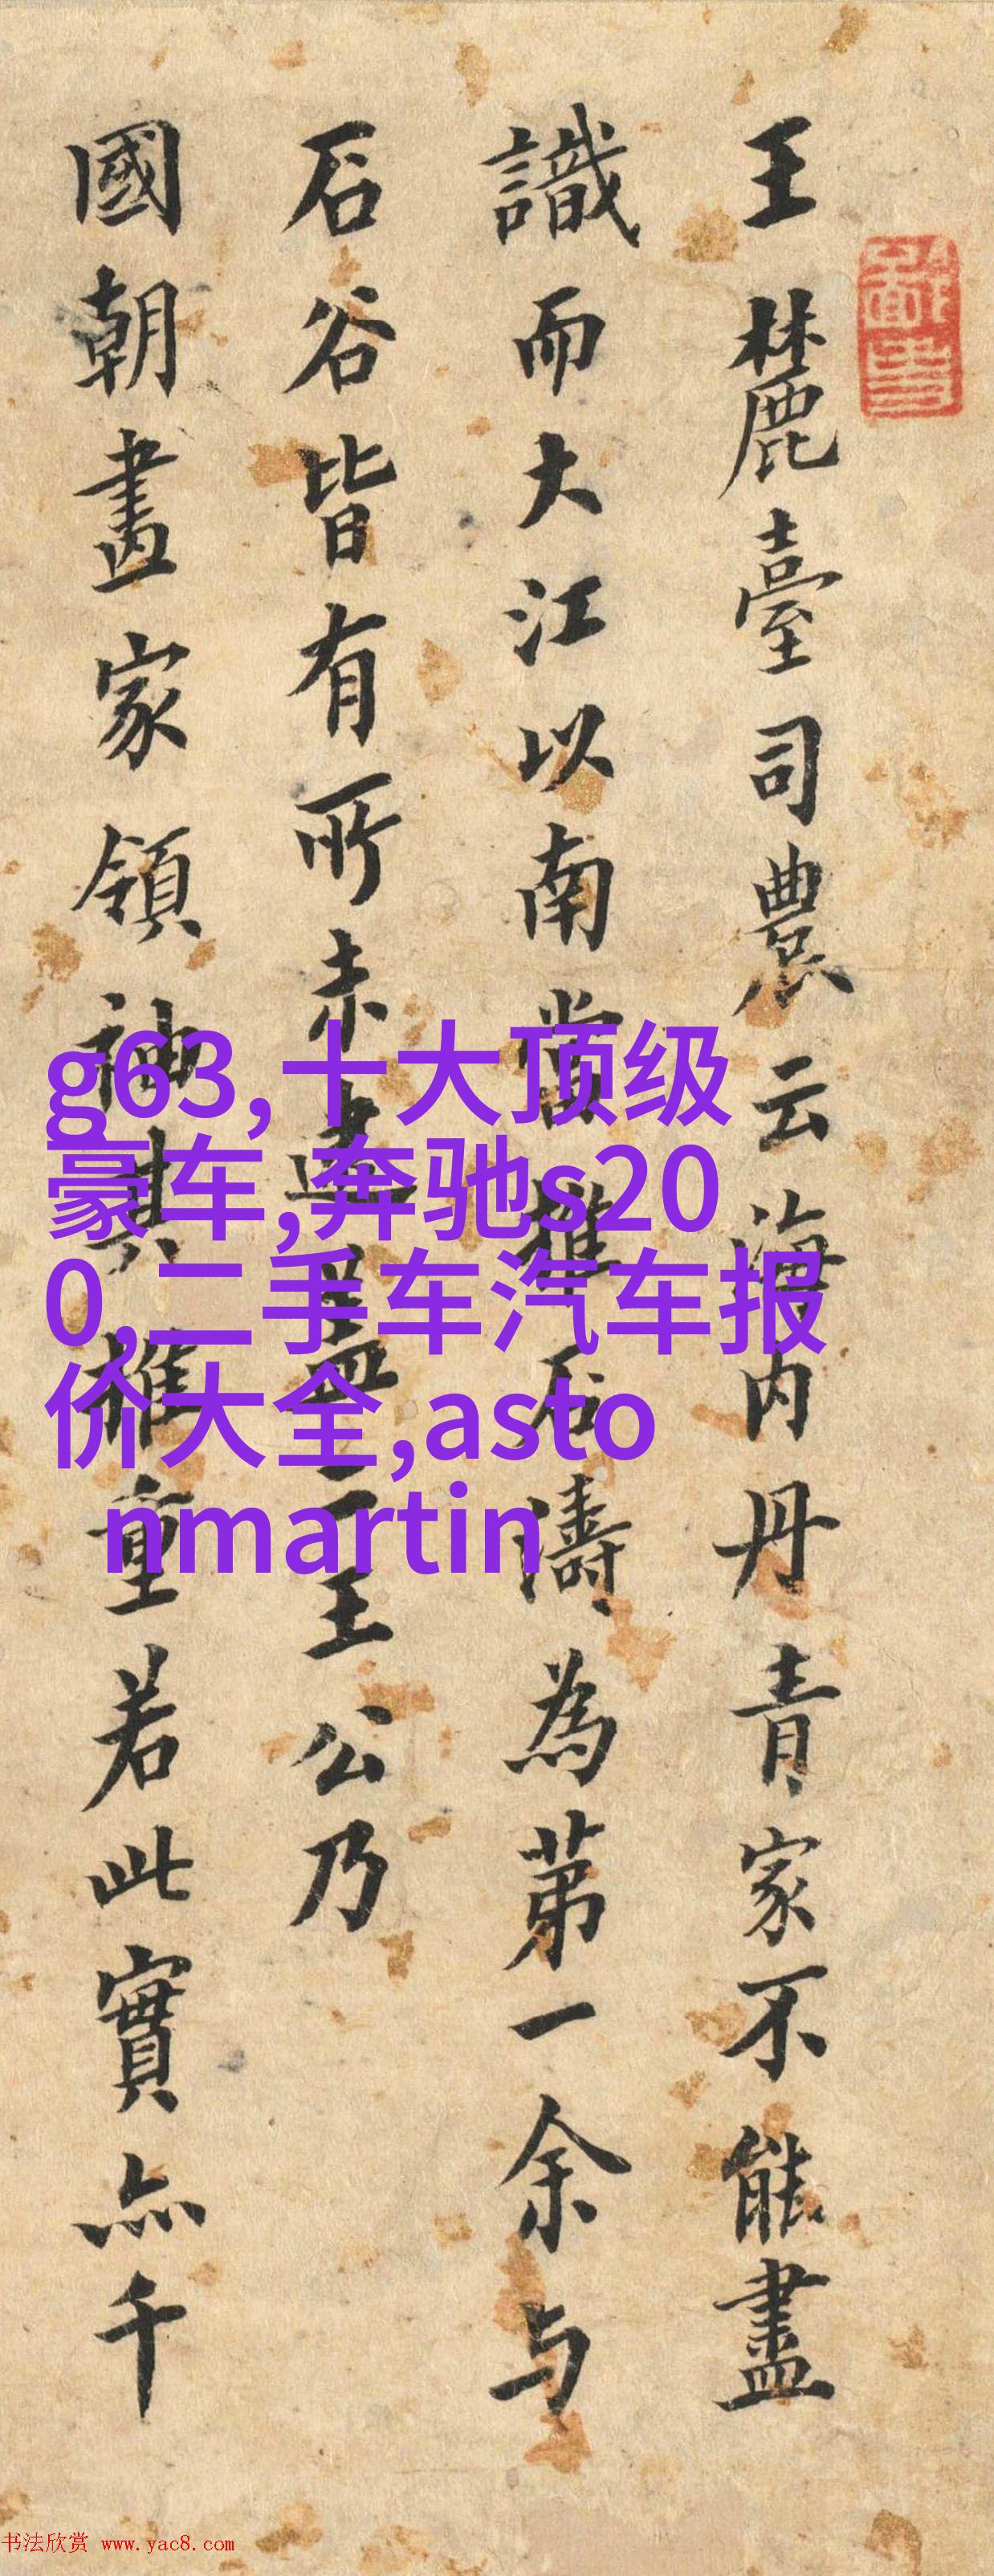 王麓臺司農云海内丹青家不能盡
識而大江以南當推石濤為第一余与
石谷皆有所未逮蓋二王公乃
國朝畫家領袖其推重若此實亦千
g63,十大顶级
豪车,奔驰s20
0,二手车汽车报
价大全,asto
nmartin
书法欣赏 www.yac8.com